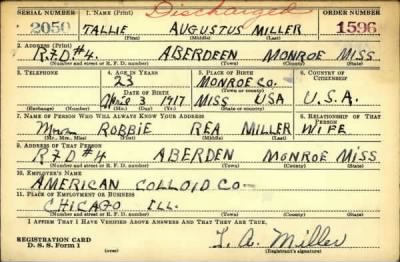 SERIAL NUMBER 1. NAME (Print) Discharged ORDER NUMBER
2050 TALLIE AUGUSTUS MILLER 1596
(First) (Middle) (Last)
2. ADDRESS (Print)
R.F.D. #4. ABERDEEN MONROE MISS
(Number and street or R. F. D. number) (Town) (County) (State)
3. TELEPHONE 4. AGE IN YEARS 5. PLACE OF BIRTH 6. COUNTRY OF CITIZENSHIP
23 MONROE CO.
DATE OF BIRTH (Town or county)
April 3 1917 MISS USA U.S.A.
(Exchange) (Number) (Mo.) (Day) (Yr.) (State or country)
7. NAME OF PERSON WHO WILL ALWAYS KNOW YOUR ADDRESS 8. RELATIONSHIP OF THAT PERSON
Mrs. ROBBIE REA MILLER WIFE
(Mr., Mrs., Miss) (First) (Middle) (Last)
9. ADDRESS OF THAT PERSON
R.F.D #4 ABERDEN MONROE MISS.
(Number and street or R. F. D. number) (Town) (County) (State)
10. EMPLOYER'S NAME
AMERICAN COLLOID CO
11. PLACE OF EMPLOYMENT OR BUSINESS
CHICAGO ILL.
(Number and street or R. F. D. number) (Town) (County) (State)
I AFFIRM THAT I HAVE VERIFIED ABOVE ANSWERS AND THAT THEY ARE TRUE.
REGISTRATION CARD
D. S. S. Form 1 T. A. Miller
(Registrant's signature)